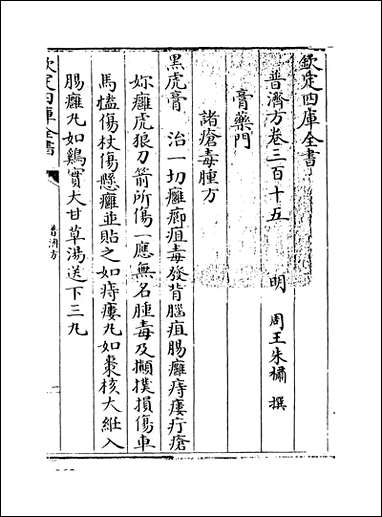 欽定四庫全書
普濟方卷三百十五
明 周王朱橚 撰
膏藥門
諸瘡毒腫方
黑虎膏 治一切癰癤疽毒發背腦疽腸癰痔瘻疔瘡
妳癰虎狼刀箭所傷一應無名腫毒及攧撲損傷車
馬榼傷杖傷懸癰並貼之如痔瘻丸如棗核大紝入
腸癰丸如鷄實大甘草湯送下三九
欽定四庫全書
普濟方
一